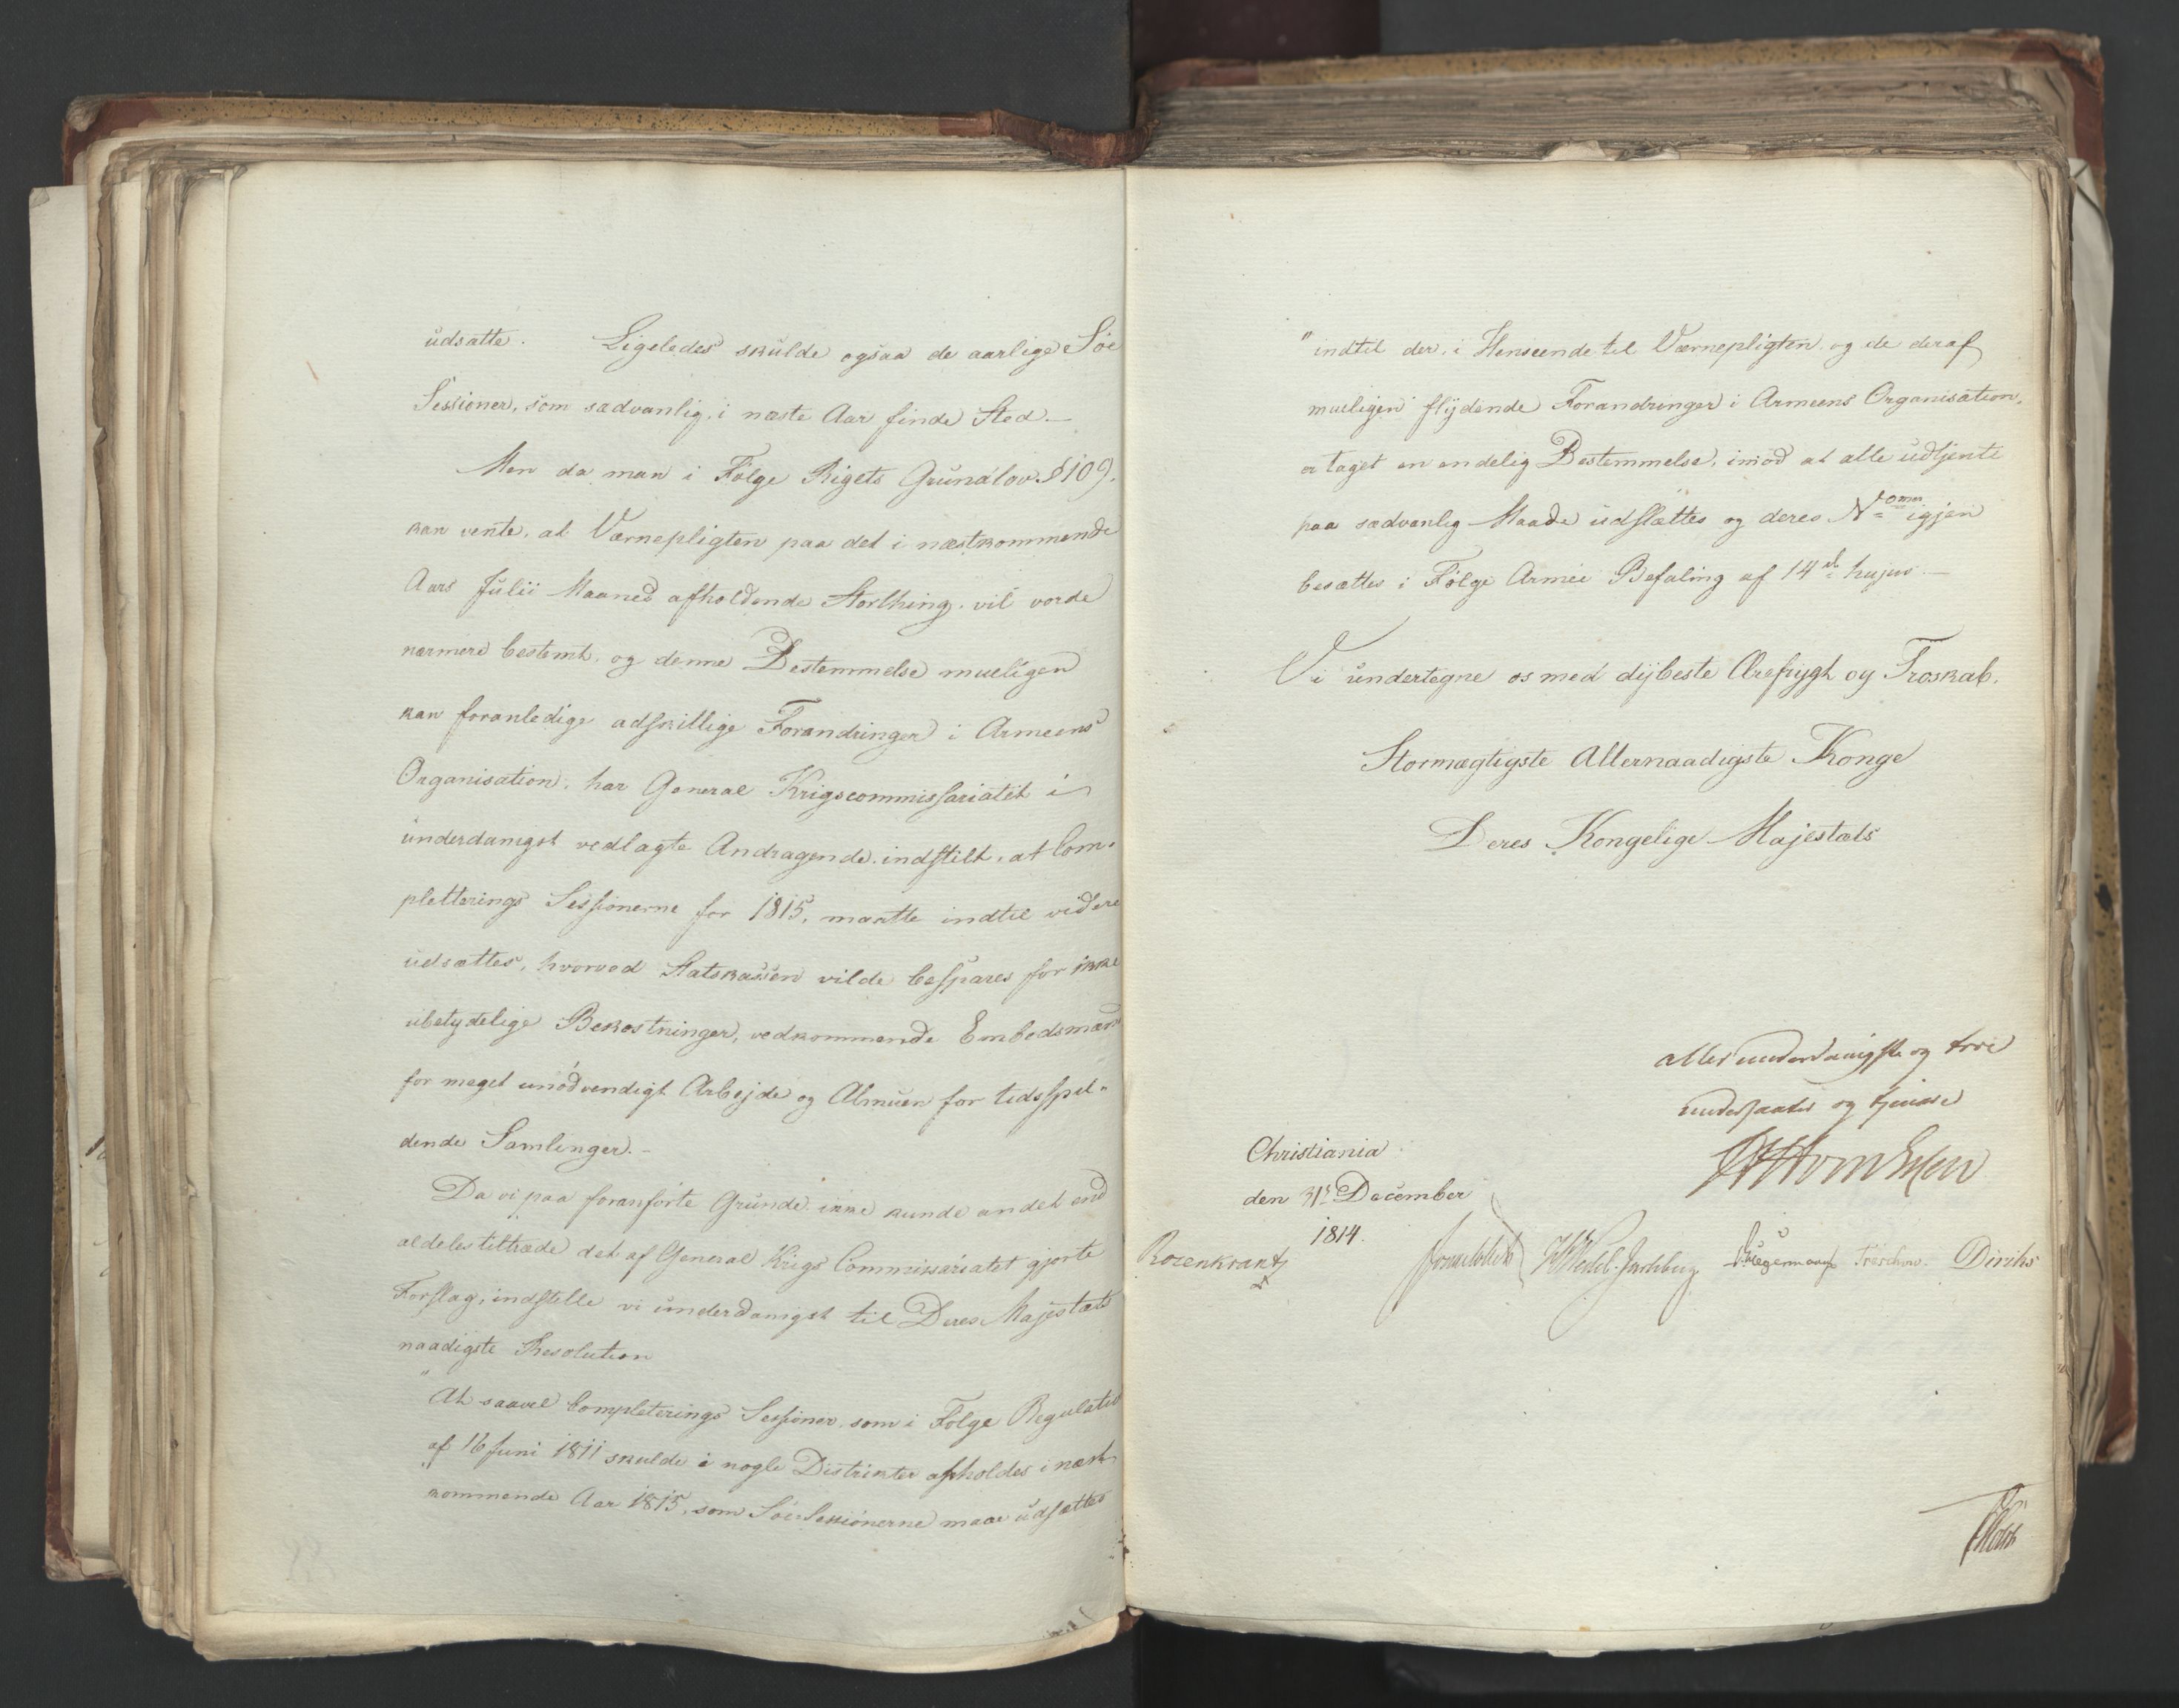 udsatte. Ligeledes skulde ogsaa de aarlige Söe
Sessioner, som sædvanlig, i næste Aar finde Sted.—
Men da man i Følge Rigets Grundlov §109.
kan vente, at Værnepligten paa det i næstkommende
Aars Julii Maaned afholdende Storthing, vil vorde
nærmere bestemt, og denne Bestemmelse mueligen
kan foranledige adskillige Forandringer i Armeens
Organisation, har General Krigscommissariatet i
underdanigst vedlagte Andragende indstilt, at Com-
pletterings Sessionerne for 1815, maatte indtil videre
udsættes, hvorved Statskassen vilde bespares for ikke
ubetydelige Bekostninger, vedkommende Embedsmænd
for meget unödvendigt Arbejde og Almuen for tidsspil-
dende Samlinger.—
Da vi paa foranførte Grunde ikke kunde andet end
aldeles tiltræde det af General Krigs Commissariatet gjorte
Forslag, indstille vi underdanigst til Deres Majestæts
naadigste Resolution
"At saavel Completerings Sessioner, som i Følge Regulativ
af 16 Juni 1811 skulde i nogle Distrikter afholdes i næst
kommende Aar 1815, som Söe-Sessionerne maae udsættes
"indtil der, i Henseende til Værnepligten og de deraf
mueligen flydende Forandringer i Armeens Organisation,
er taget en endelig Bestemmelse, imod at alle udtjente
paa sædvanlig Maade udslættes og deres N=omer igjen
besættes i Følge Armee Befaling af 14de hujus.—
Vi undertegne os med dybeste Ærefrygt og Troskab.
Stormægtigste Allernaadigste Konge
Deres Kongelige Majestæts
allerunderdanigste og troe
undersaatter og tjenere
Christiania
den 31te December
1814.
Rosenkrantz Sommerhielm Wedel-Jarlsberg Hegermann Treschow. Diriks